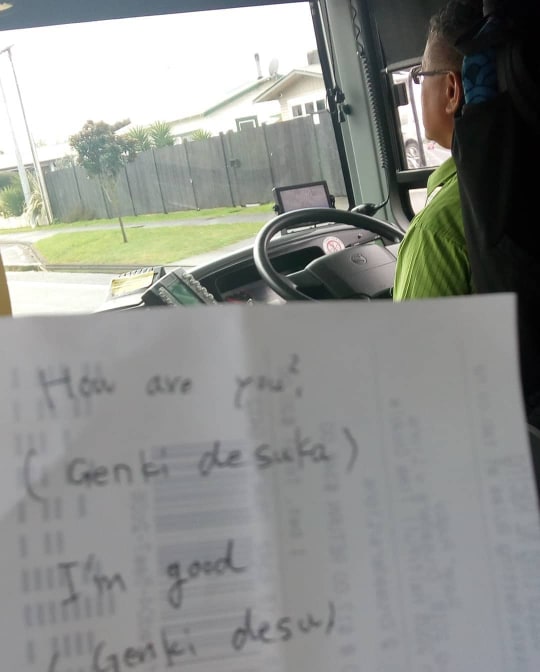 How are you?
( Genki desuka )
I'm good
( Genki desu )